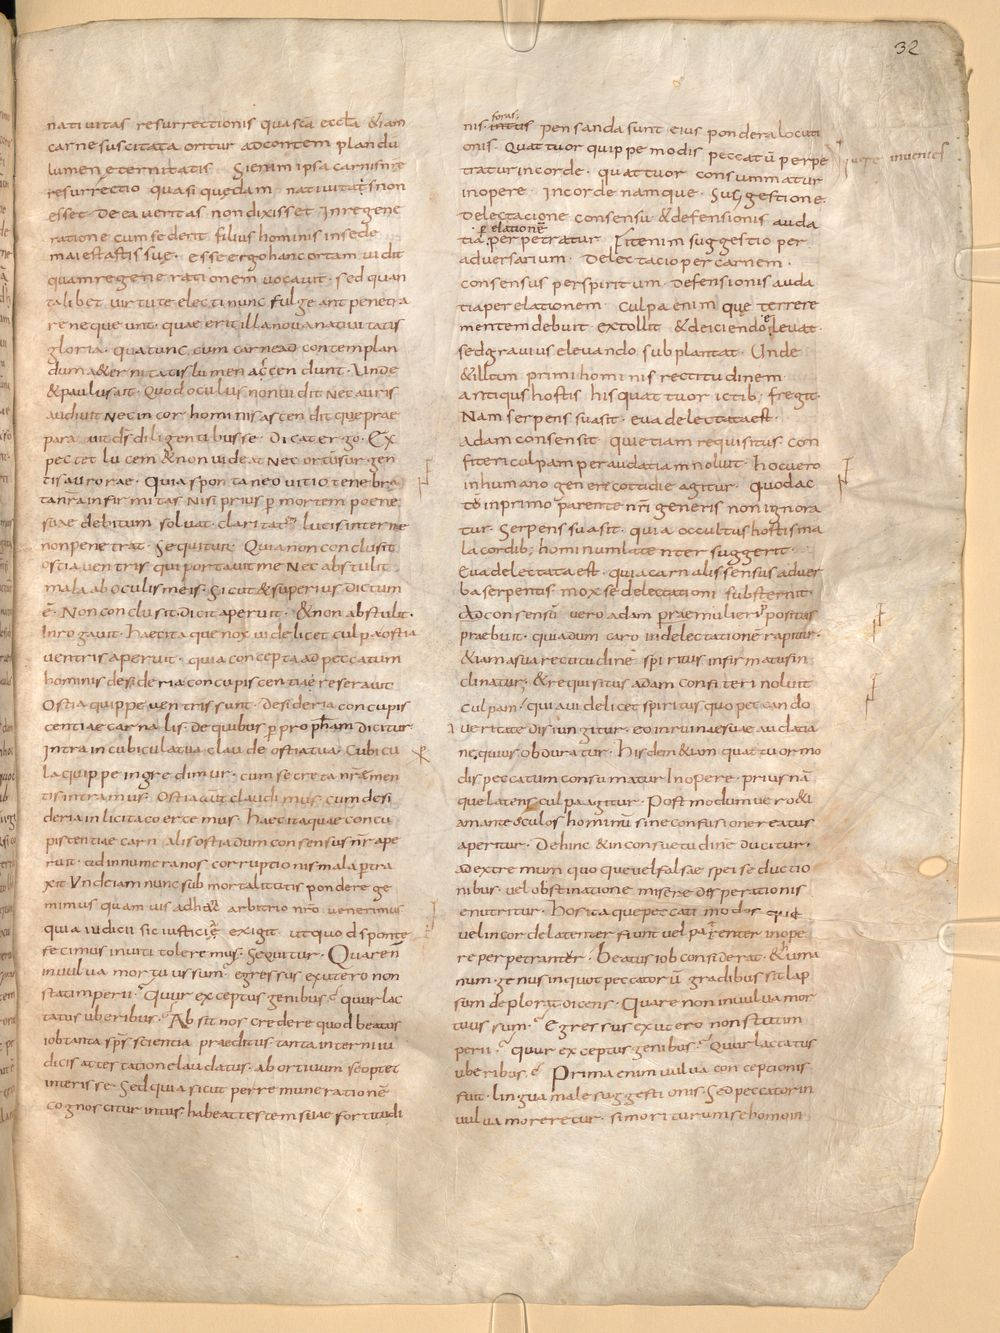 32
natiuitas resurrectionis quasca eccla &iam
carne suscitata oritur adcontemplandu
lumen eternitatis Sienim ipsa carnis nre
resurrectio quasi quędam natiuitas non
esset De ea ueritas non dixisset Inregene
ratione cum sederit filius hominis in sede
maiestatis suę esse ergo hanc ortam uidit
quam regenerationem uocauit sed quan
talibet uirtute electi nunc fulgeant penetra
re nequeunt quae erit illa noua natiuitatis
gloria qua tunc cum carne ad contemplan
dum aeternitatis lumen ascendunt Unde
& paulus ait Quod oculus non uidit Nec auris
audiuit Nec in cor hominis ascendit que prae
parauit ds diligentibus se Dicat ergo Ex
pectet lucem & non uideat Nec ortum surgen
tis aurorae Quia spontaneo uitio tenebra
ta nra infirmitas Nisi prius p mortem poenę
suae debitum soluat claritatē lucis internę
non penetrat Sequitur Quia non conclusit
ostia uentris qui portauit me Nec abstulit
mala ab oculis meis Sicut & superius dictum
ē Non conclusit dicit aperuit & non abstulit
Inrogauit haec itaque nox uidelicet culpa ostia
uentris aperuit quia concepta ad peccatum
hominis desideria concupiscentiae reserauit
Ostia quippe uentris sunt Desideria concupis
centiae carnalis De quibus p prophetam dicitur
Intra in cubicula tua claude ostia tua Cubicu
la quippe ingredimur cum secreta nrae men
tis intramus Ostia aut claudimus cum desi
deria inlicita coercemus haec itaque concu
piscentiae carnalis ostia dum consensus nr ape
ruit ad innumera nos corruptionis mala ptra
xit Vnde iam nunc sub mortalitatis pondere ge
mimus quam uis adhaec arbitrio nro uenerimus
quia iudicii sic iusticia exigit ut quod sponte
fecimus inuiti toleremus Sequitur Quare n̄
in uulua mortuus sum egressus ex utero non
statim perii Quur exceptus genibus quur lac
tatus uberibus Absit nos credere quod beatus
iob tanta sps scientia praeditus tanta interni iu
dicis attestatione laudatus abortiuum se optet
interisse Sed quia sicut per remunerationē
cognoscitur intus habeat testem suae fortitudi
foras
nis intus pensanda sunt eius pondera locuti
onis Quattuor quippe modis peccatū perpe
tratur in corde quattuor consummatur
in opere In corde namque Suggestione
Delectacione consensu & defensionis auda
p elationē
tia perpetratur Fit enim suggestio per
aduersarium Delectacio per carnem
consensus per spiritum Defensionis auda
tia per elationem Culpa enim que terrere
mentem debuit extollit & deiciendo eleuat
sed grauius eleuando subplantat Unde
& illam primi hominis rectitudinem
antiquus hostis his quattuor ictib; fregit
Nam serpens suasit eua delectata est
Adam consensit qui etiam requisitus con
fiteri culpam per audatiam noluit hoc uero
in humano genere cottidie agitur quod ac
tū in primo parente nri generis non ignora
tur Serpens suasit quia occultus hostis ma
la cordib; hominum latenter suggerit
Eua delectata est quia carnalis sensus ad uer
ba serpentis mox se delectationi substernit
Ad consensū uero adam praemulieri positus
praebuit quia dum caro in delectationē rapitur
& iam a sua rectitudine spiritus infirmatus in
clinatur & requisitus adam confiteri noluit
culpam quia uidelicet spiritus quo peccando
a ueritate disiungitur eo in ruinae suae audatia
nequius obduratur hisdem & iam quattuor mo
dis peccatum consumatur In opere prius nā
que latens culpa agitur Postmodum uero &i
am ante oculos hominū sine confusione reatus
aperitur Dehinc & in consuetudine ducitur
ad extremum quoque uel falsae spei seductio
nibus uel obstinatione miserę disperationis
enutritur hos itaque peccati modos qui
uel in corde latenter fiunt uel patenter in ope
re perpetrantur beatus iob considerat & huma
num genus in quot peccatorū gradibus sit lap
sum deplorat dicens Quare non in uulua mor
tuus sum Egressus ex utero non statim
perii quur exceptus genibus Quur lactatus
uberibus Prima enim uulua conceptionis
fuit lingua male suggestionis Sed peccator in
uulua moreretur si moriturum se homo in